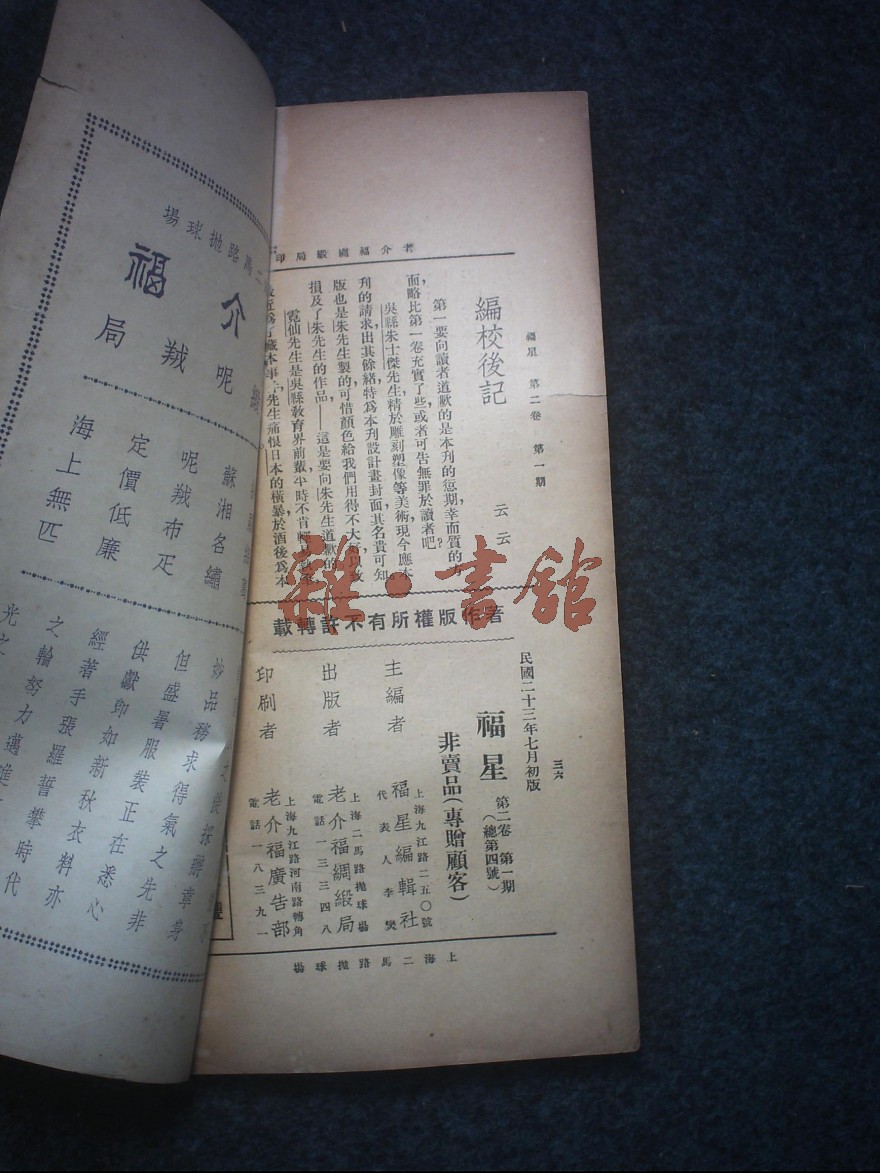 福星 第二卷 第一期
三六
老介福綢緞局印
編校後記
云云
第一要向讀者道歉的是本刊的愆期,幸而質的方
面,略比第一卷充實了些,或者可告無罪於讀者吧?
吳縣朱士傑先生,精於雕刻塑像等美術,現今應本
刊的請求,出其餘緒,特為本刊設計畫封面,其名貴可知。
版也是朱先生製的,可惜顏色給我們用得不大好,以致
損及了朱先生的作品——這是要向朱先生道歉的。
霓仙先生是吳縣教育界前輩,平時不肯輕易
最近為了藏本事件,先生痛恨日本的橫暴,於酒後為本
著作版權所有不許轉載
民國二十三年七月初版
福星 第二卷 第一期
(總第四號)
非賣品(專贈顧客)
主編者 福星編輯社
上海九江路二五〇號
代表人李燮
出版者 老介福綢緞局
上海二馬路拋球場
電話一三三四八
印刷者 老介福廣告部
上海九江路河南路轉角
電話一八三九一
上海二馬路拋球場
二馬路拋球場
介福
呢羢局
蘇湘名繡
呢羢布疋
定價低廉
海上無匹
妙品務求得氣之先非
但盛暑服裝正在悉心
供獻即如新秋衣料亦
經著手張羅誓攀時代
之輪努力邁進
光之
雜·書館